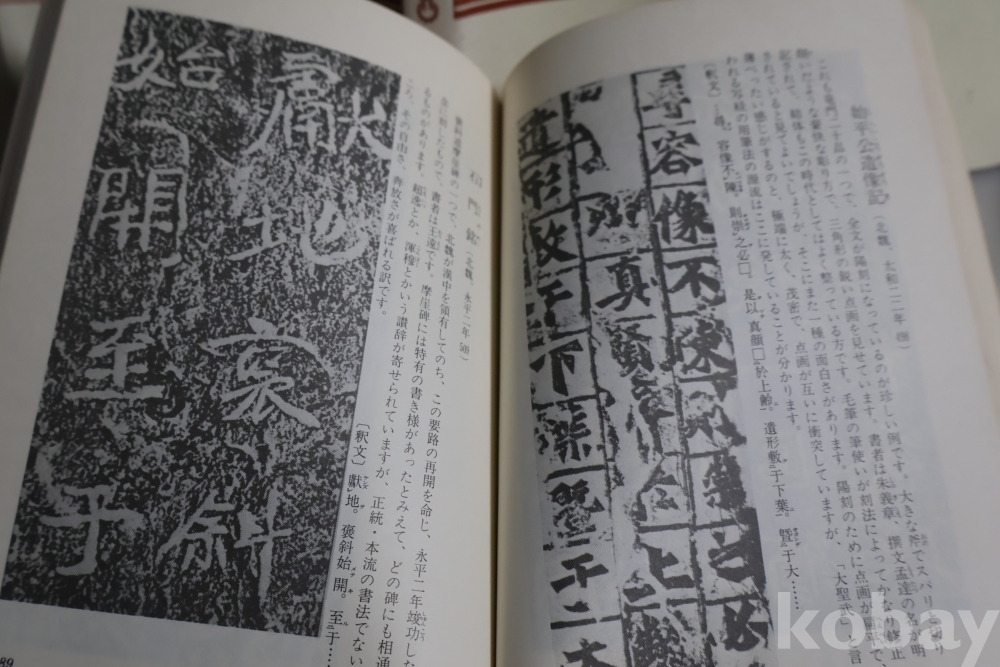 始平公造像記（北魏、太和二二年 498）
これも竜門二十品の一つで、全文が陽刻になっているのが珍しい例です。大きな斧でスパリと
だような豪快な彫りぶりで、三角形の鋭い点画を見せています。書者は朱義章、撰文孟達の名が明
記されて、結体もこの時代としてはよく整っている方です。毛筆の筆使いが刻法によってかなり修正
されていると見てよいでしょうが、そこにまた一種の面白さがあります。陽刻のために点画が扁平で
薄べったい感じがするのと、極端に太く、茂密で、点画が互いに衝突していますが、「大聖武」と言
われる写経の用筆法の源流はここに発していることが分かります。
〔釈文〕…尋。容像不陳。則崇之必□。是以真顔□於上齢。遺形敷于下葉。曁于大……
尋容像不陳則崇之必
真顔於上
遺形敷于下葉曁于大
石門銘（北魏、永平二年 509）
褒斜道摩崖碑の一つで、北魏が漢中を領有してのち、この要路の再開を命じ、永平二年竣功した
きに刻したもので、書者は王遠です。摩崖碑には特有の書き様があったとみえて、どの碑にも相通
るものがあります。超逸とか、渾穆とかいう讃辞が寄せられていますが、正統・本流の書法でない
これ、その自由さ、奔放さが喜ばれる訳です。
〔釈文〕献地。褒斜始開。至于……
献地褒斜
始開至于
89
kobay